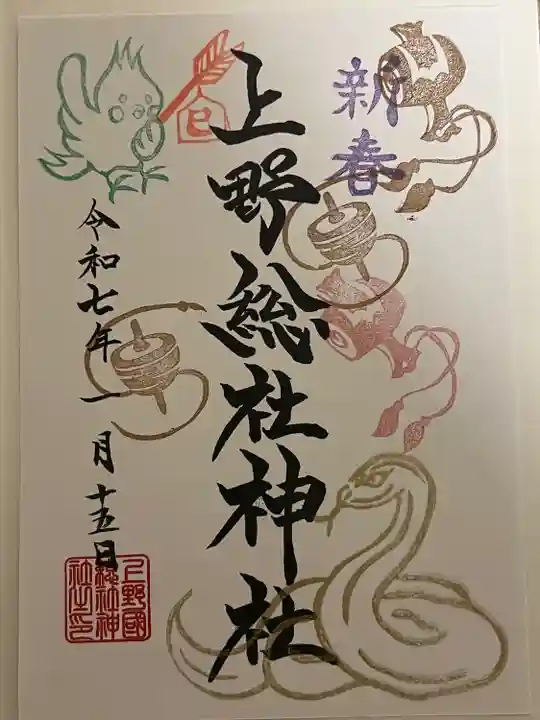 新春
上野總社神社
巳
令和七年一月十五日
上野國
総社神
社之印